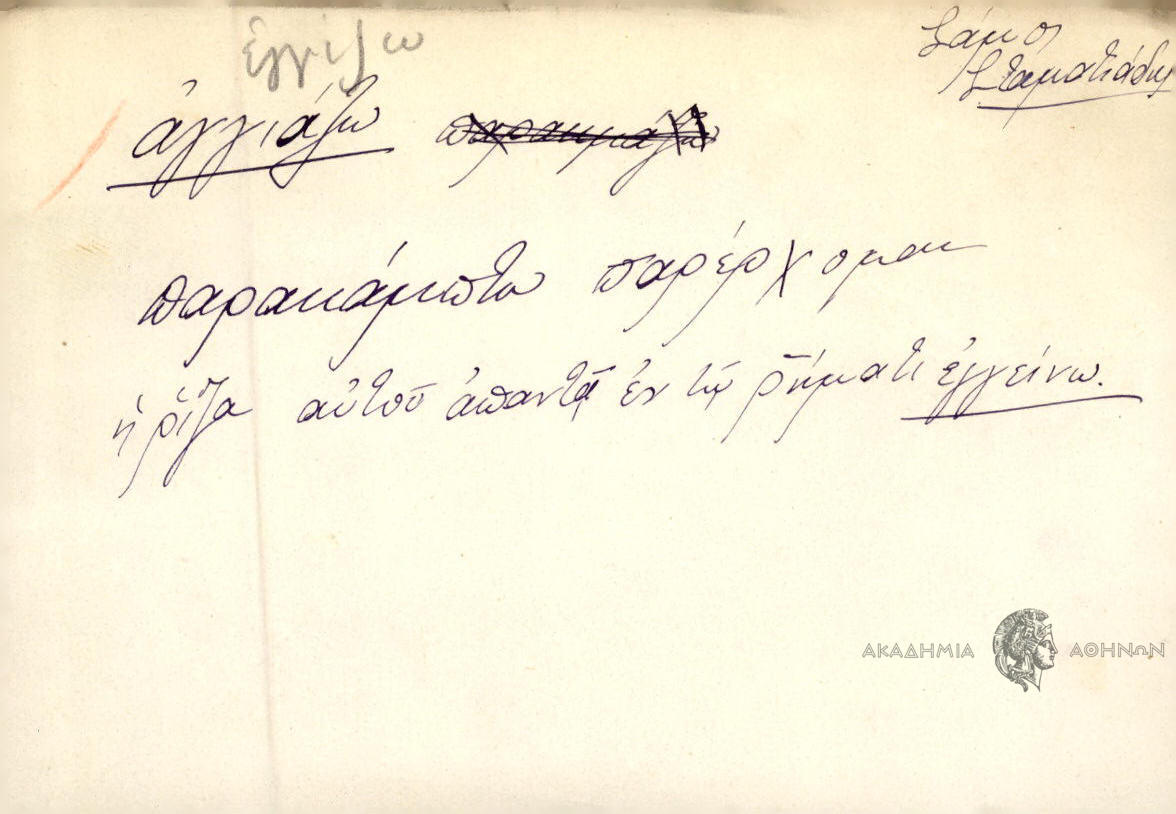 ἐγγίζω
Σάμος
Σταματιάδης
ἀγγιάζω παρακμάζω
παρακάμπτω παρέρχομαι
ἡ ῥίζα αὐτοῦ ἀπαντᾷ ἐν τῷ ῥήματι ἐγγείνω.
ΑΚΑΔΗΜΙΑ ΑΘΗΝΩΝ